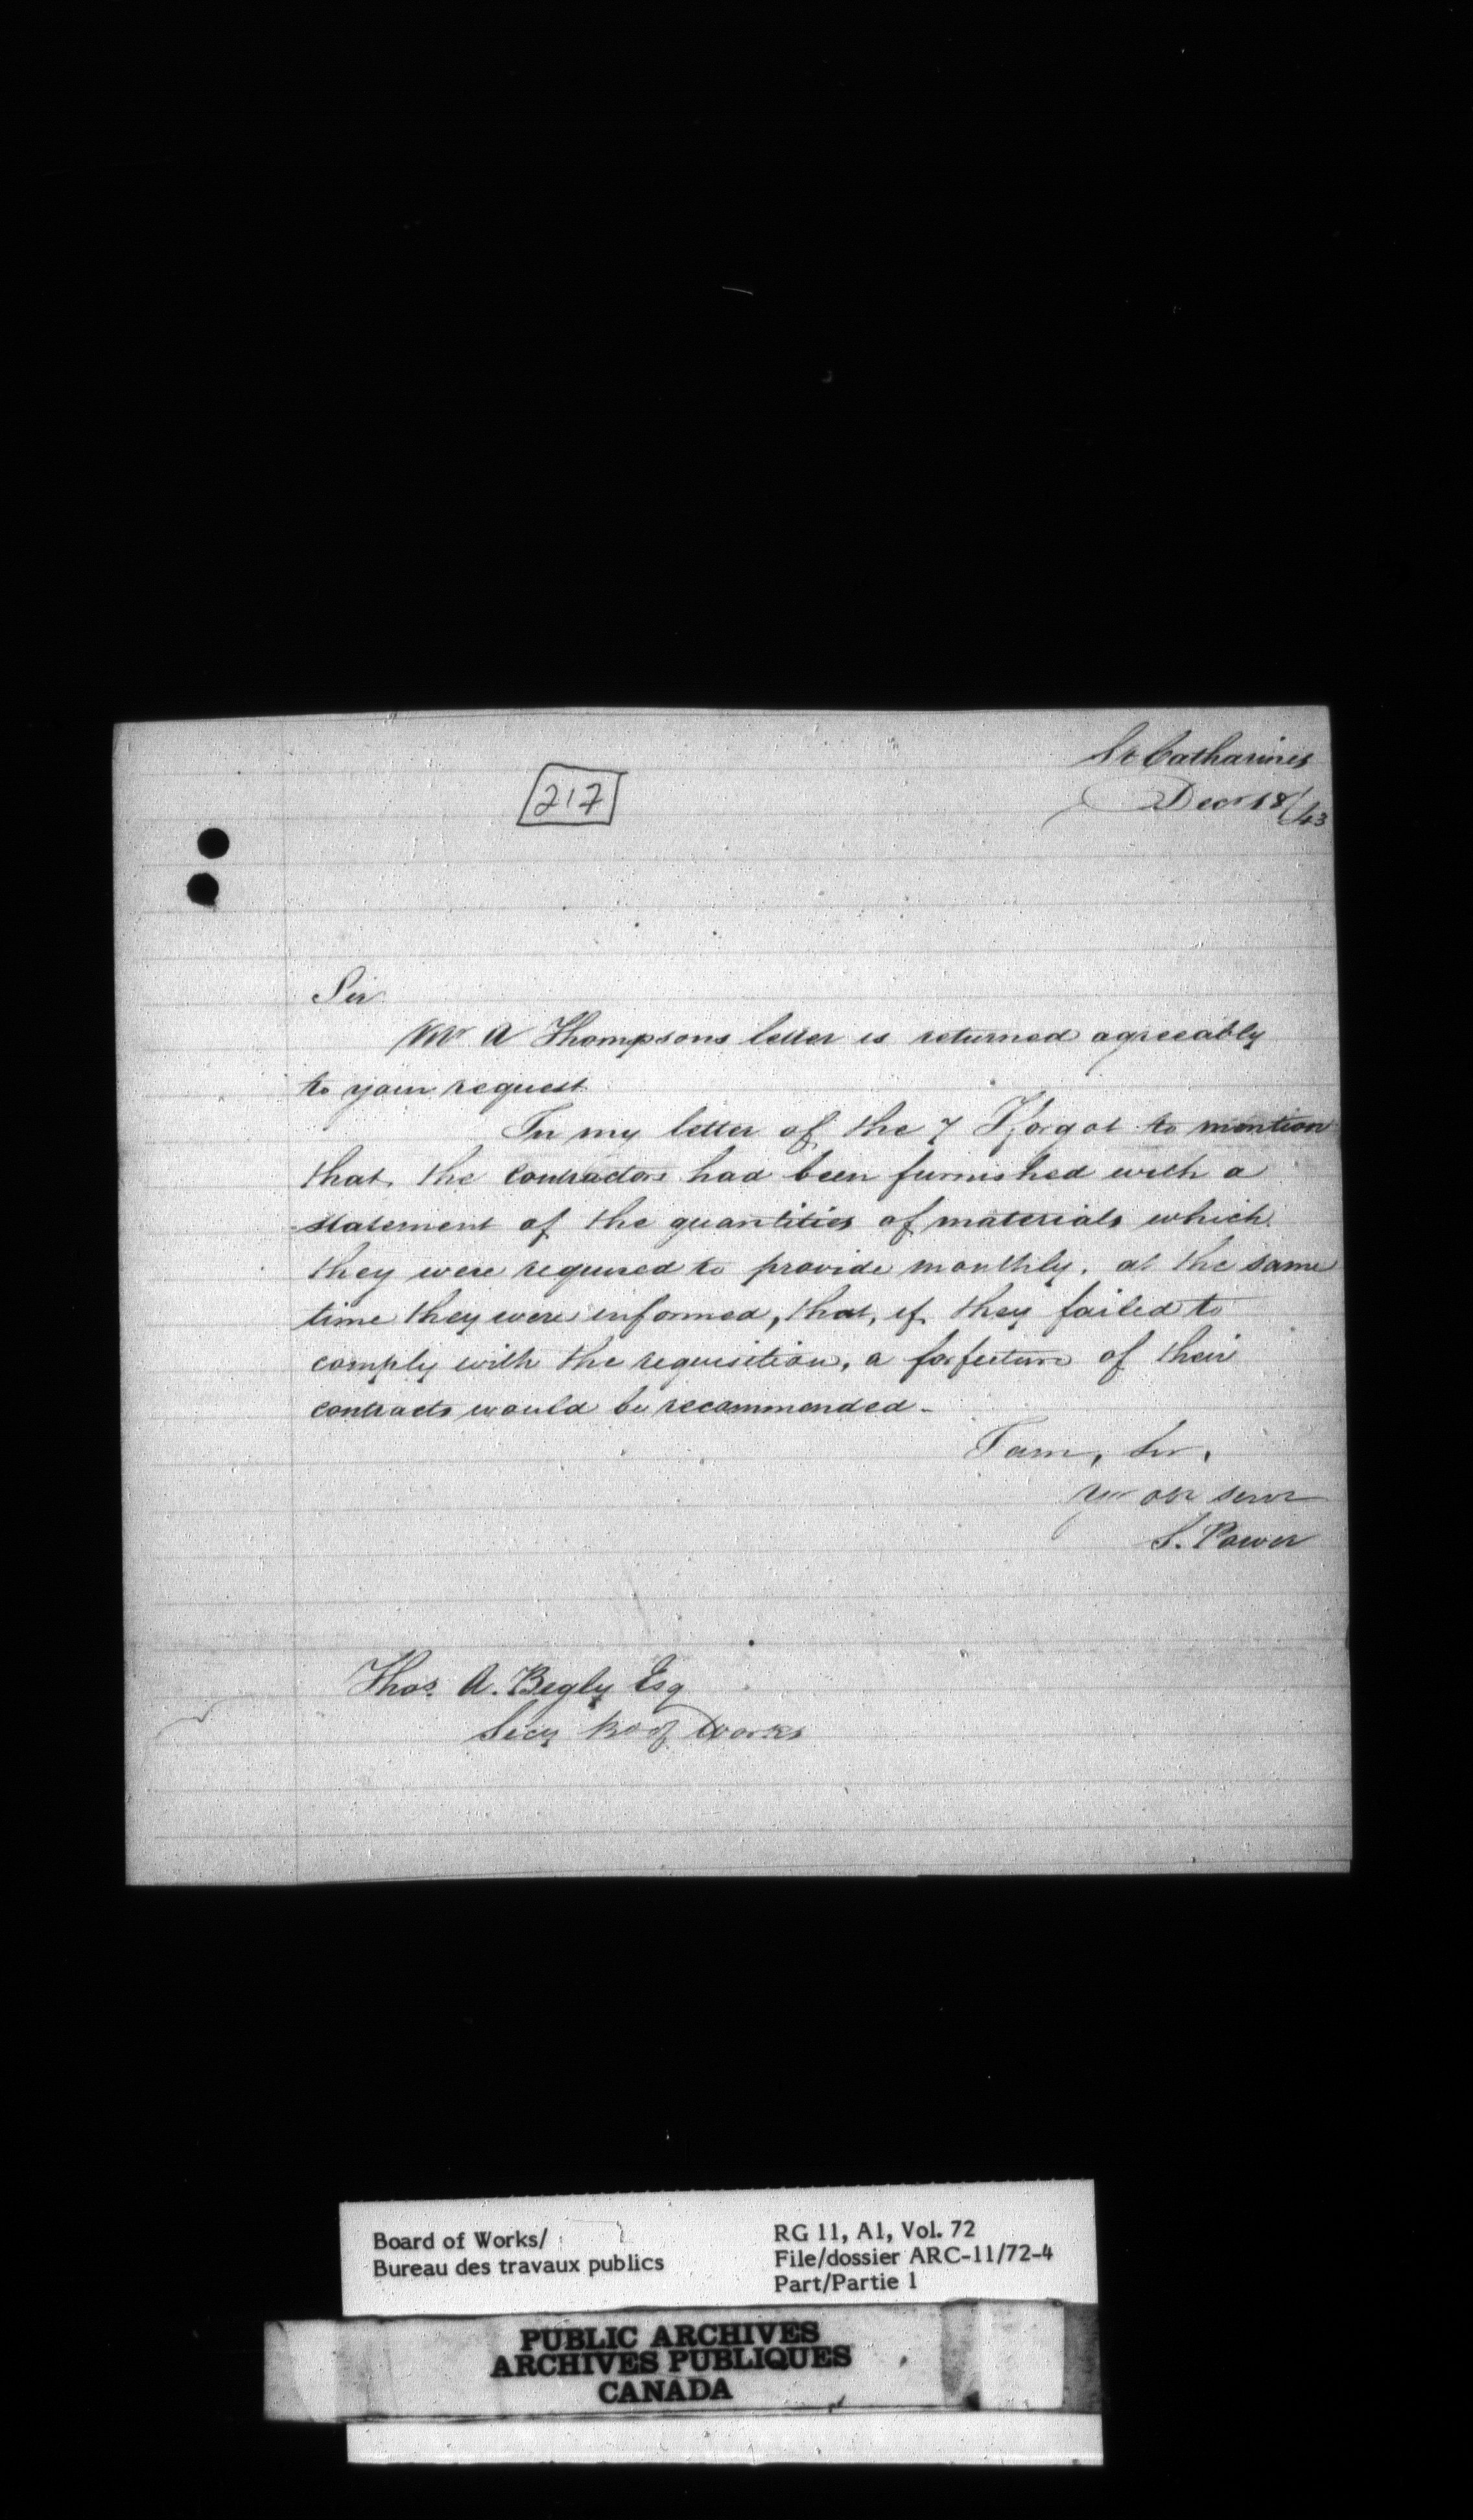 St Catharines
217
Decr 18/43
Sir
Mr A Thompsons letter is returned agreeably
to your request
In my letter of the 7 I forgot to mention
that the contractors had been furnished with a
statement of the quantities of materials which
they were required to provide monthly. at the same
time they were informed, that, if they failed to
comply with the requisition, a forfeiture of their
contracts would be recommended -
I am, Sir,
Yr ob servt
S. Power
Thos. A. Begly Esq
Secy Bd of Works
Board of Works/
Bureau des travaux publics
RG 11, A1, Vol. 72
File/dossier ARC-11/72-4
Part/Partie 1
PUBLIC ARCHIVES
ARCHIVES PUBLIQUES
CANADA